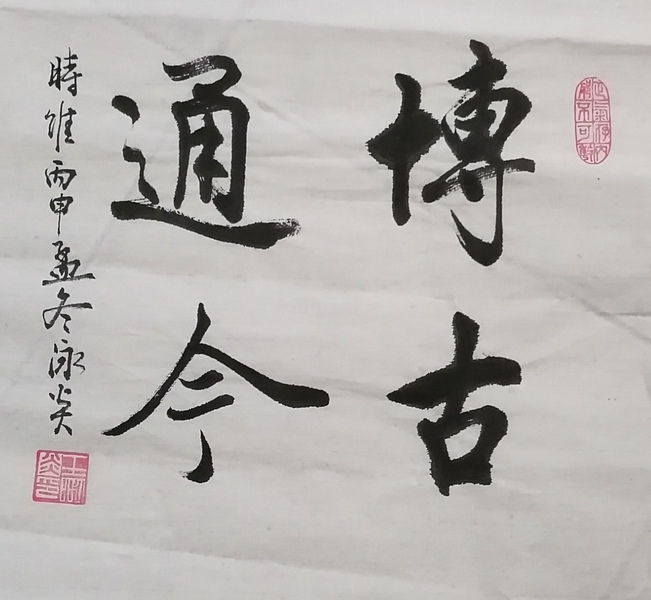 博古
通今
時維丙申孟冬泳炎